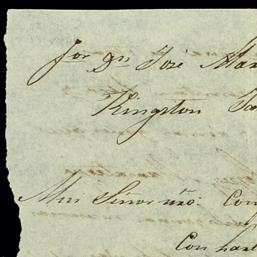 Sor Dn José Mar
Kingston Ja
Muy Señor mío: Con
Con